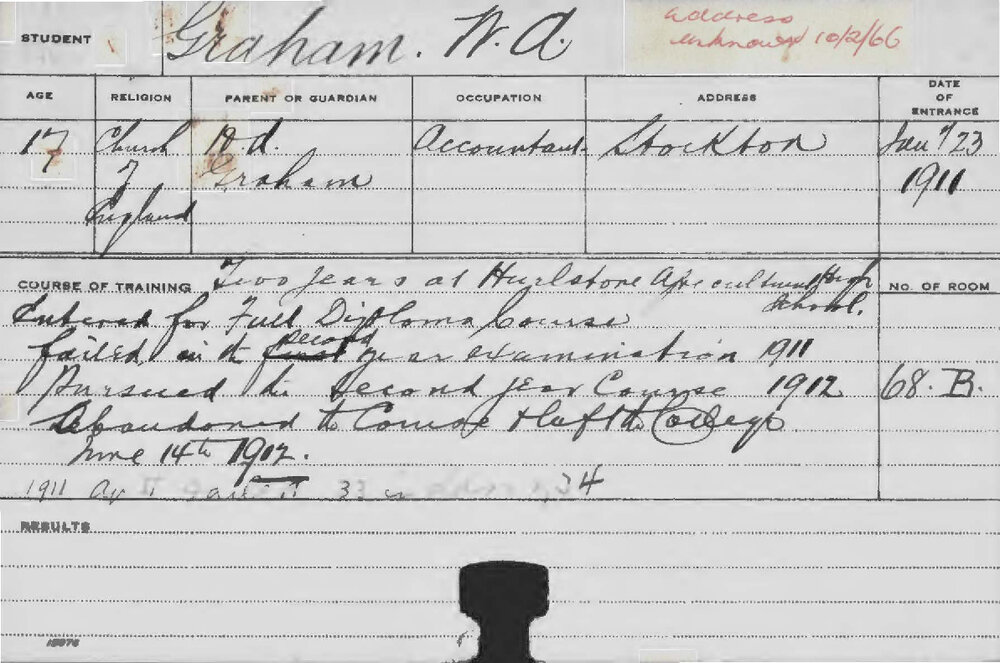 STUDENT Graham. W. A.
address
unknown 10/2/66
AGE RELIGION PARENT OR GUARDIAN OCCUPATION ADDRESS DATE OF ENTRANCE
17 Church W. A. Accountant Stockton Jany 23
of Graham 1911
England
COURSE OF TRAINING Two years at Hurlstone Agricultural High School.
NO. OF ROOM
Entered for Full Diploma Course
failed in the first second year examination 1911
Pursued the second year Course 1912 68. B.
Abandoned the Course & left the College
June 14th 1912.
1911 II failed 33 in 34
RESULTS